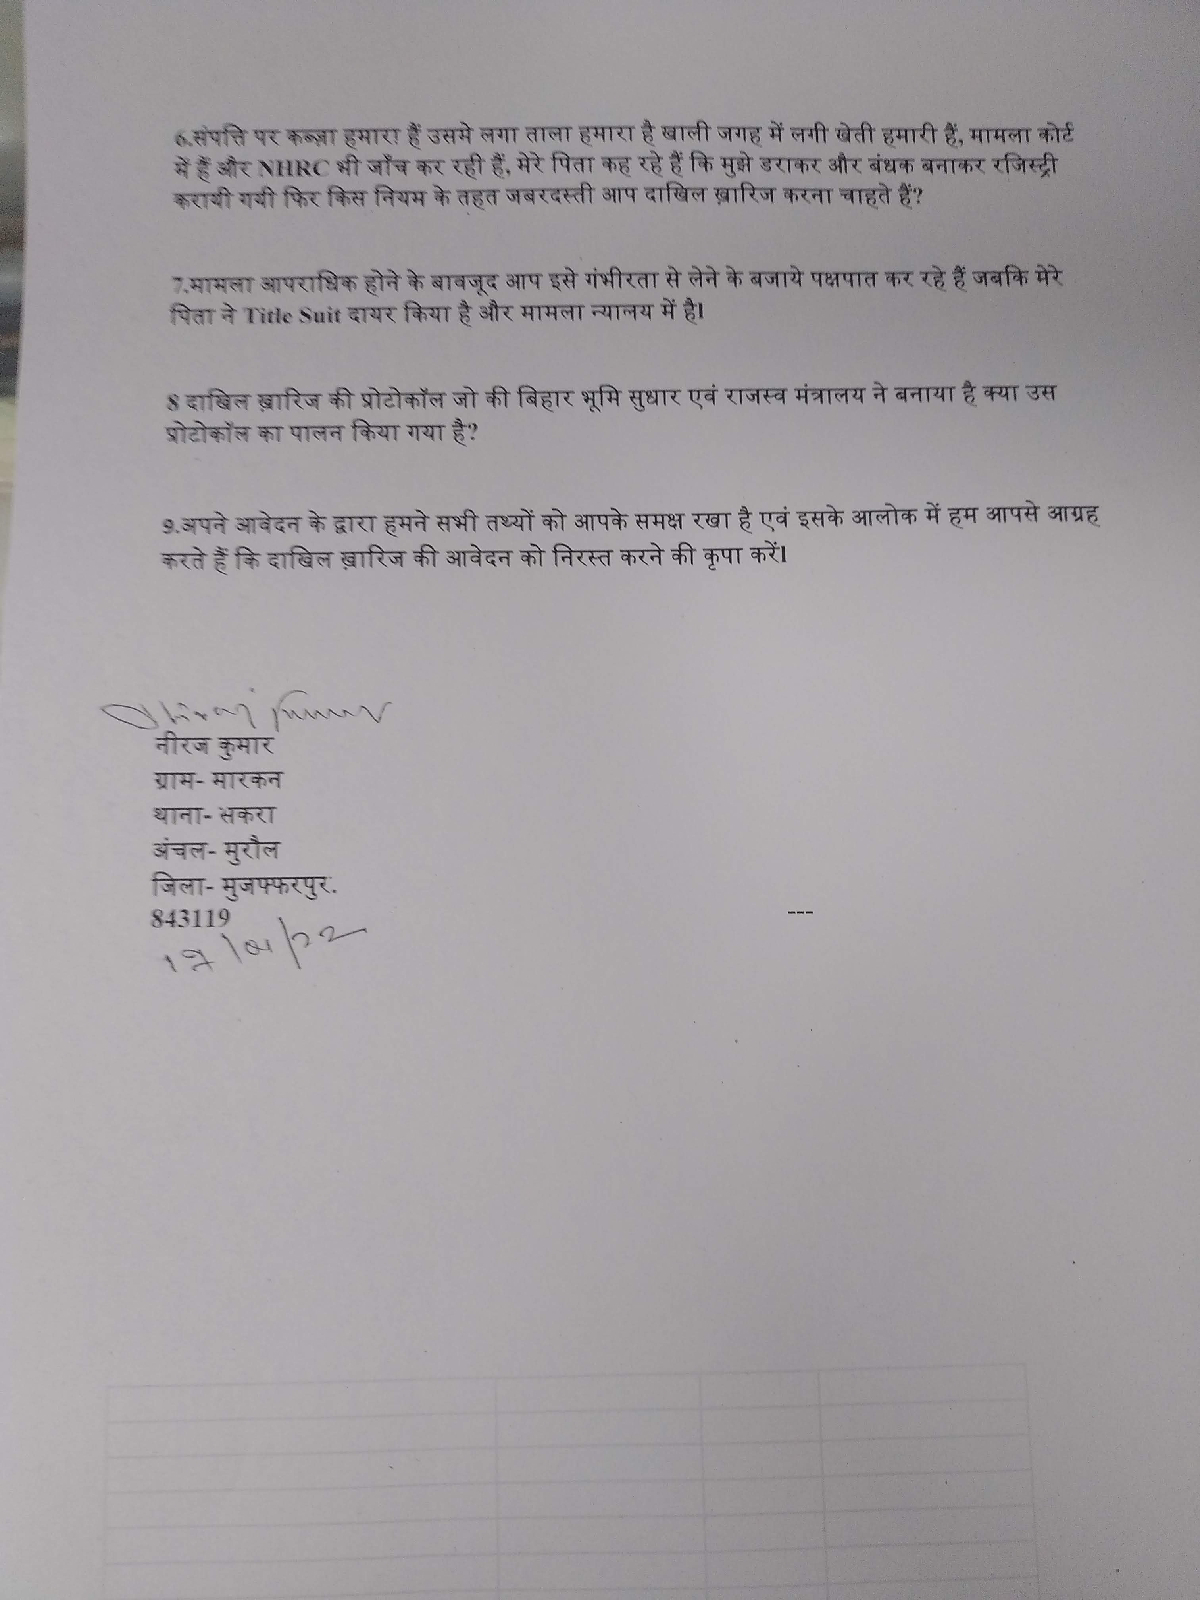 6.संपत्ति पर कब्ज़ा हमारा हैं उसमे लगा ताला हमारा है खाली जगह में लगी खेती हमारी हैं, मामला कोर्ट
में हैं और NHRC भी जाँच कर रही हैं, मेरे पिता कह रहे हैं कि मुझे डराकर और बंधक बनाकर रजिस्ट्री
करायी गयी फिर किस नियम के तहत जबरदस्ती आप दाखिल ख़ारिज करना चाहते हैं?
7.मामला आपराधिक होने के बावजूद आप इसे गंभीरता से लेने के बजाये पक्षपात कर रहे हैं जबकि मेरे
पिता ने Title Suit दायर किया है और मामला न्यालय में है।
8 दाखिल ख़ारिज की प्रोटोकॉल जो की बिहार भूमि सुधार एवं राजस्व मंत्रालय ने बनाया है क्या उस
प्रोटोकॉल का पालन किया गया है?
9.अपने आवेदन के द्वारा हमने सभी तथ्यों को आपके समक्ष रखा है एवं इसके आलोक में हम आपसे आग्रह
करते हैं कि दाखिल ख़ारिज की आवेदन को निरस्त करने की कृपा करें।
Kumar
नीरज कुमार
ग्राम- मारकन
थाना- सकरा
अंचल- मुरौल
जिला- मुजफ्फरपुर.
843119
---